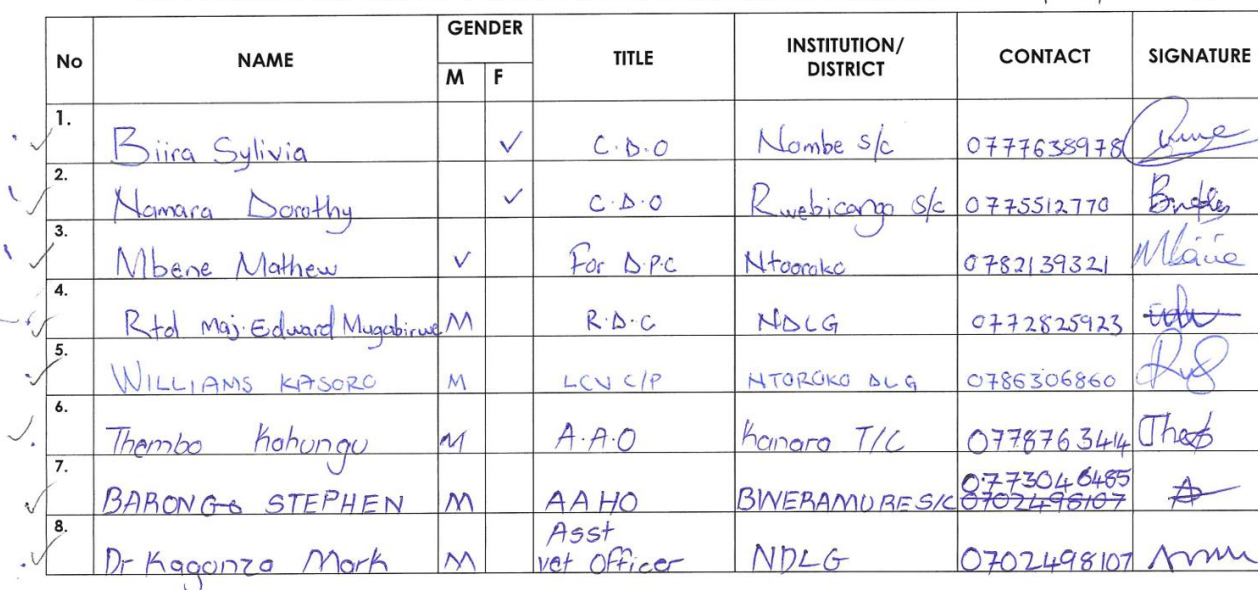 No NAME GENDER M F TITLE INSTITUTION/ DISTRICT CONTACT SIGNATURE
1. Biira Sylivia ✓ C.D.O Nombe S/c 0777638978
2. Namara Dorothy ✓ C.D.O Rwebicango S/c 0775512770
3. Mbene Mathew ✓ For D.P.C Ntooroko 0782139321
4. Rtd Maj. Edward Mugabirwe M R.D.C NDLG 0772825923
5. WILLIAMS KASORO M LCV C/P NTOROKO DLG 0786306860
6. Thembo Kohungu M A.A.O Kanara T/C 0778763414
7. BARONGO STEPHEN M AAHO BWERAMURE S/C 0773046485 0702498107
8. Dr Kaganzo Mark M Asst vet Officer NDLG 0702498107